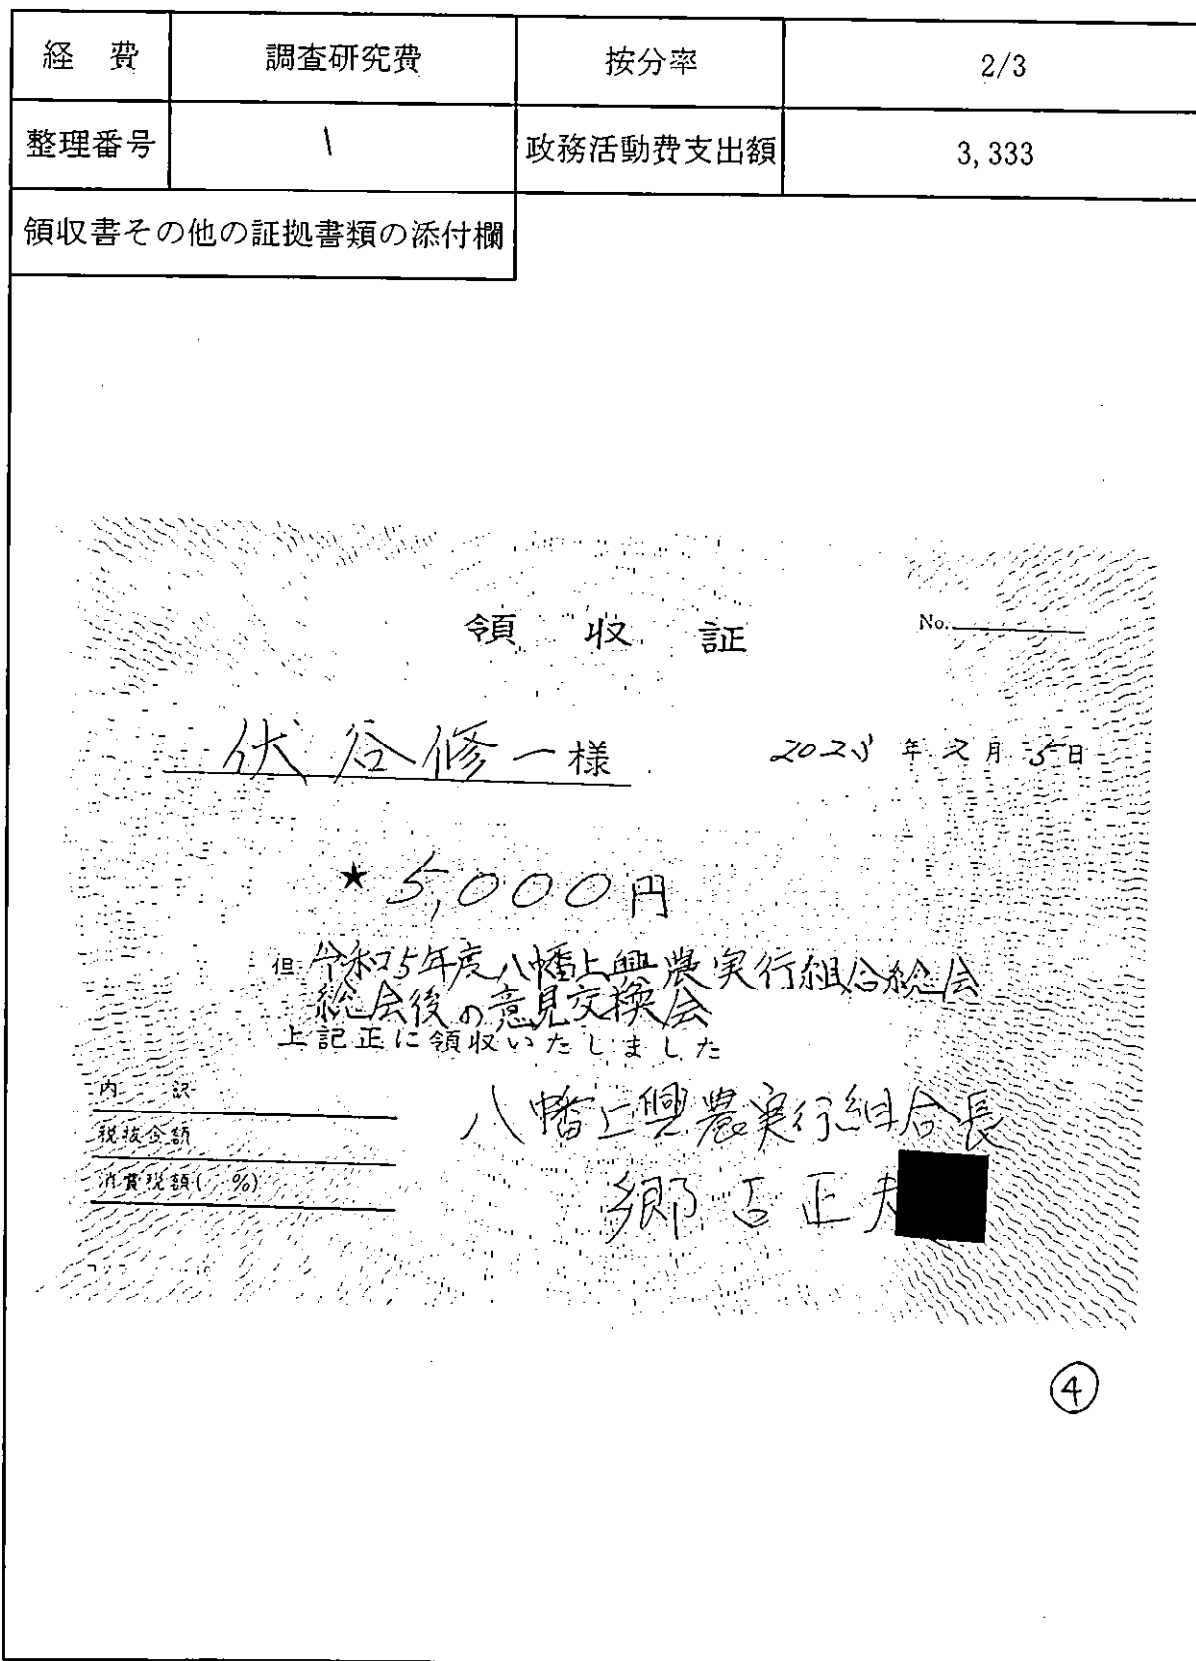 経 費 調査研究費 按分率 2/3
整理番号 1 政務活動費支出額 3,333
領収書その他の証拠書類の添付欄
領 収 証
No.
伏谷修一様
2023年2月5日
★ 5,000円
但 令和5年度八幡上興農実行組合総会
総会後の意見交換会
上記正に領収いたしました
内 訳
税抜金額
消費税額( %)
八幡上興農実行組合長
郷 正夫
④